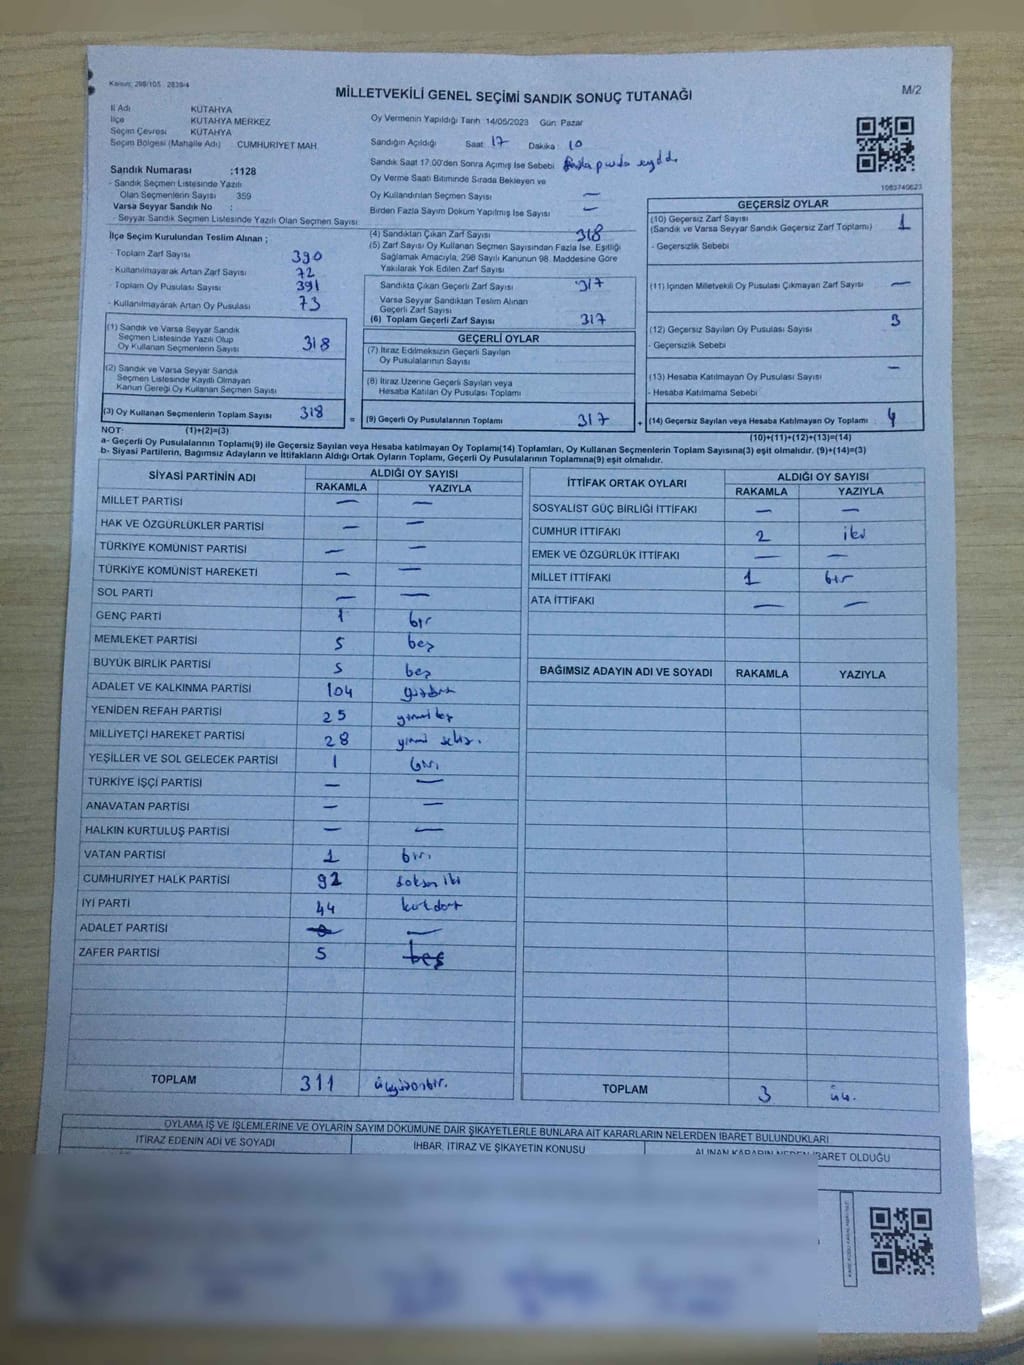 Kanun: 298/105 2839/4
MİLLETVEKİLİ GENEL SEÇİMİ SANDIK SONUÇ TUTANAĞI
M/2
İl Adı KÜTAHYA
İlçe KÜTAHYA MERKEZ
Seçim Çevresi KÜTAHYA
Seçim Bölgesi (Mahalle Adı) CUMHURİYET MAH.
Sandık Numarası :1128
- Sandık Seçmen Listesinde Yazılı
Olan Seçmenlerin Sayısı 359
Varsa Seyyar Sandık No :
- Seyyar Sandık Seçmen Listesinde Yazılı Olan Seçmen Sayısı:
İlçe Seçim Kurulundan Teslim Alınan ;
- Toplam Zarf Sayısı 390
- Kullanılmayarak Artan Zarf Sayısı 72
- Toplam Oy Pusulası Sayısı 391
- Kullanılmayarak Artan Oy Pusulası 73
(1) Sandık ve Varsa Seyyar Sandık
Seçmen Listesinde Yazılı Olup
Oy Kullanan Seçmenlerin Sayısı 318
(2) Sandık ve Varsa Seyyar Sandık
Seçmen Listesinde Kayıtlı Olmayan
Kanun Gereği Oy Kullanan Seçmen Sayısı
(3) Oy Kullanan Seçmenlerin Toplam Sayısı 318
Oy Vermenin Yapıldığı Tarih 14/05/2023 Gün: Pazar
Sandığın Açıldığı Saat: 17 Dakika: 10
Sandık Saat 17:00'den Sonra Açılmış İse Sebebi
Oy Verme Saati Bitiminde Sırada Bekleyen ve
Oy Kullandırılan Seçmen Sayısı —
Birden Fazla Sayım Döküm Yapılmış İse Sayısı —
(4) Sandıktan Çıkan Zarf Sayısı 318
(5) Zarf Sayısı Oy Kullanan Seçmen Sayısından Fazla İse, Eşitliği
Sağlamak Amacıyla, 298 Sayılı Kanunun 98. Maddesine Göre
Yakılarak Yok Edilen Zarf Sayısı
Sandıkta Çıkan Geçerli Zarf Sayısı 317
Varsa Seyyar Sandıktan Teslim Alınan
Geçerli Zarf Sayısı
(6) Toplam Geçerli Zarf Sayısı 317
GEÇERLİ OYLAR
(7) İtiraz Edilmeksizin Geçerli Sayılan
Oy Pusulalarının Sayısı
(8) İtiraz Üzerine Geçerli Sayılan veya
Hesaba Katılan Oy Pusulası Toplamı
= (9) Geçerli Oy Pusulalarının Toplamı 317
1083740623
GEÇERSİZ OYLAR
(10) Geçersiz Zarf Sayısı 1
(Sandık ve Varsa Seyyar Sandık Geçersiz Zarf Toplamı)
- Geçersizlik Sebebi
(11) İçinden Milletvekili Oy Pusulası Çıkmayan Zarf Sayısı —
(12) Geçersiz Sayılan Oy Pusulası Sayısı 3
- Geçersizlik Sebebi
(13) Hesaba Katılmayan Oy Pusulası Sayısı —
- Hesaba Katılmama Sebebi
+ (14) Geçersiz Sayılan veya Hesaba Katılmayan Oy Toplamı 4
NOT: (1)+(2)=(3)
(10)+(11)+(12)+(13)=(14)
a- Geçerli Oy Pusulalarının Toplamı(9) ile Geçersiz Sayılan veya Hesaba katılmayan Oy Toplamı(14) Toplamları, Oy Kullanan Seçmenlerin Toplam Sayısına(3) eşit olmalıdır. (9)+(14)=(3)
b- Siyasi Partilerin, Bağımsız Adayların ve İttifakların Aldığı Ortak Oyların Toplamı, Geçerli Oy Pusulalarının Toplamına(9) eşit olmalıdır.
SİYASİ PARTİNİN ADI ALDIĞI OY SAYISI
RAKAMLA YAZIYLA
MİLLET PARTİSİ — —
HAK VE ÖZGÜRLÜKLER PARTİSİ — —
TÜRKİYE KOMÜNİST PARTİSİ — —
TÜRKİYE KOMÜNİST HAREKETİ — —
SOL PARTİ — —
GENÇ PARTİ 1 bir
MEMLEKET PARTİSİ 5 beş
BÜYÜK BİRLİK PARTİSİ 5 beş
ADALET VE KALKINMA PARTİSİ 104
YENİDEN REFAH PARTİSİ 25 yirmi beş
MİLLİYETÇİ HAREKET PARTİSİ 28 yirmi sekiz.
YEŞİLLER VE SOL GELECEK PARTİSİ 1 bir
TÜRKİYE İŞÇİ PARTİSİ — —
ANAVATAN PARTİSİ — —
HALKIN KURTULUŞ PARTİSİ — —
VATAN PARTİSİ 1 bir.
CUMHURİYET HALK PARTİSİ 92 doksan iki
İYİ PARTİ 44 kırkdört
ADALET PARTİSİ — —
ZAFER PARTİSİ 5 beş
TOPLAM 311 üçyüzonbir.
İTTİFAK ORTAK OYLARI ALDIĞI OY SAYISI
RAKAMLA YAZIYLA
SOSYALİST GÜÇ BİRLİĞİ İTTİFAKI — —
CUMHUR İTTİFAKI 2 iki
EMEK VE ÖZGÜRLÜK İTTİFAKI — —
MİLLET İTTİFAKI 1 bir
ATA İTTİFAKI — —
BAĞIMSIZ ADAYIN ADI VE SOYADI RAKAMLA YAZIYLA
TOPLAM 3 üç.
OYLAMA İŞ VE İŞLEMLERİNE VE OYLARIN SAYIM DÖKÜMÜNE DAİR ŞİKAYETLERLE BUNLARA AİT KARARLARIN NELERDEN İBARET BULUNDUKLARI
İTİRAZ EDENİN ADI VE SOYADI İHBAR, İTİRAZ VE ŞİKAYETİN KONUSU ALINAN KARARIN NEDEN İBARET OLDUĞU